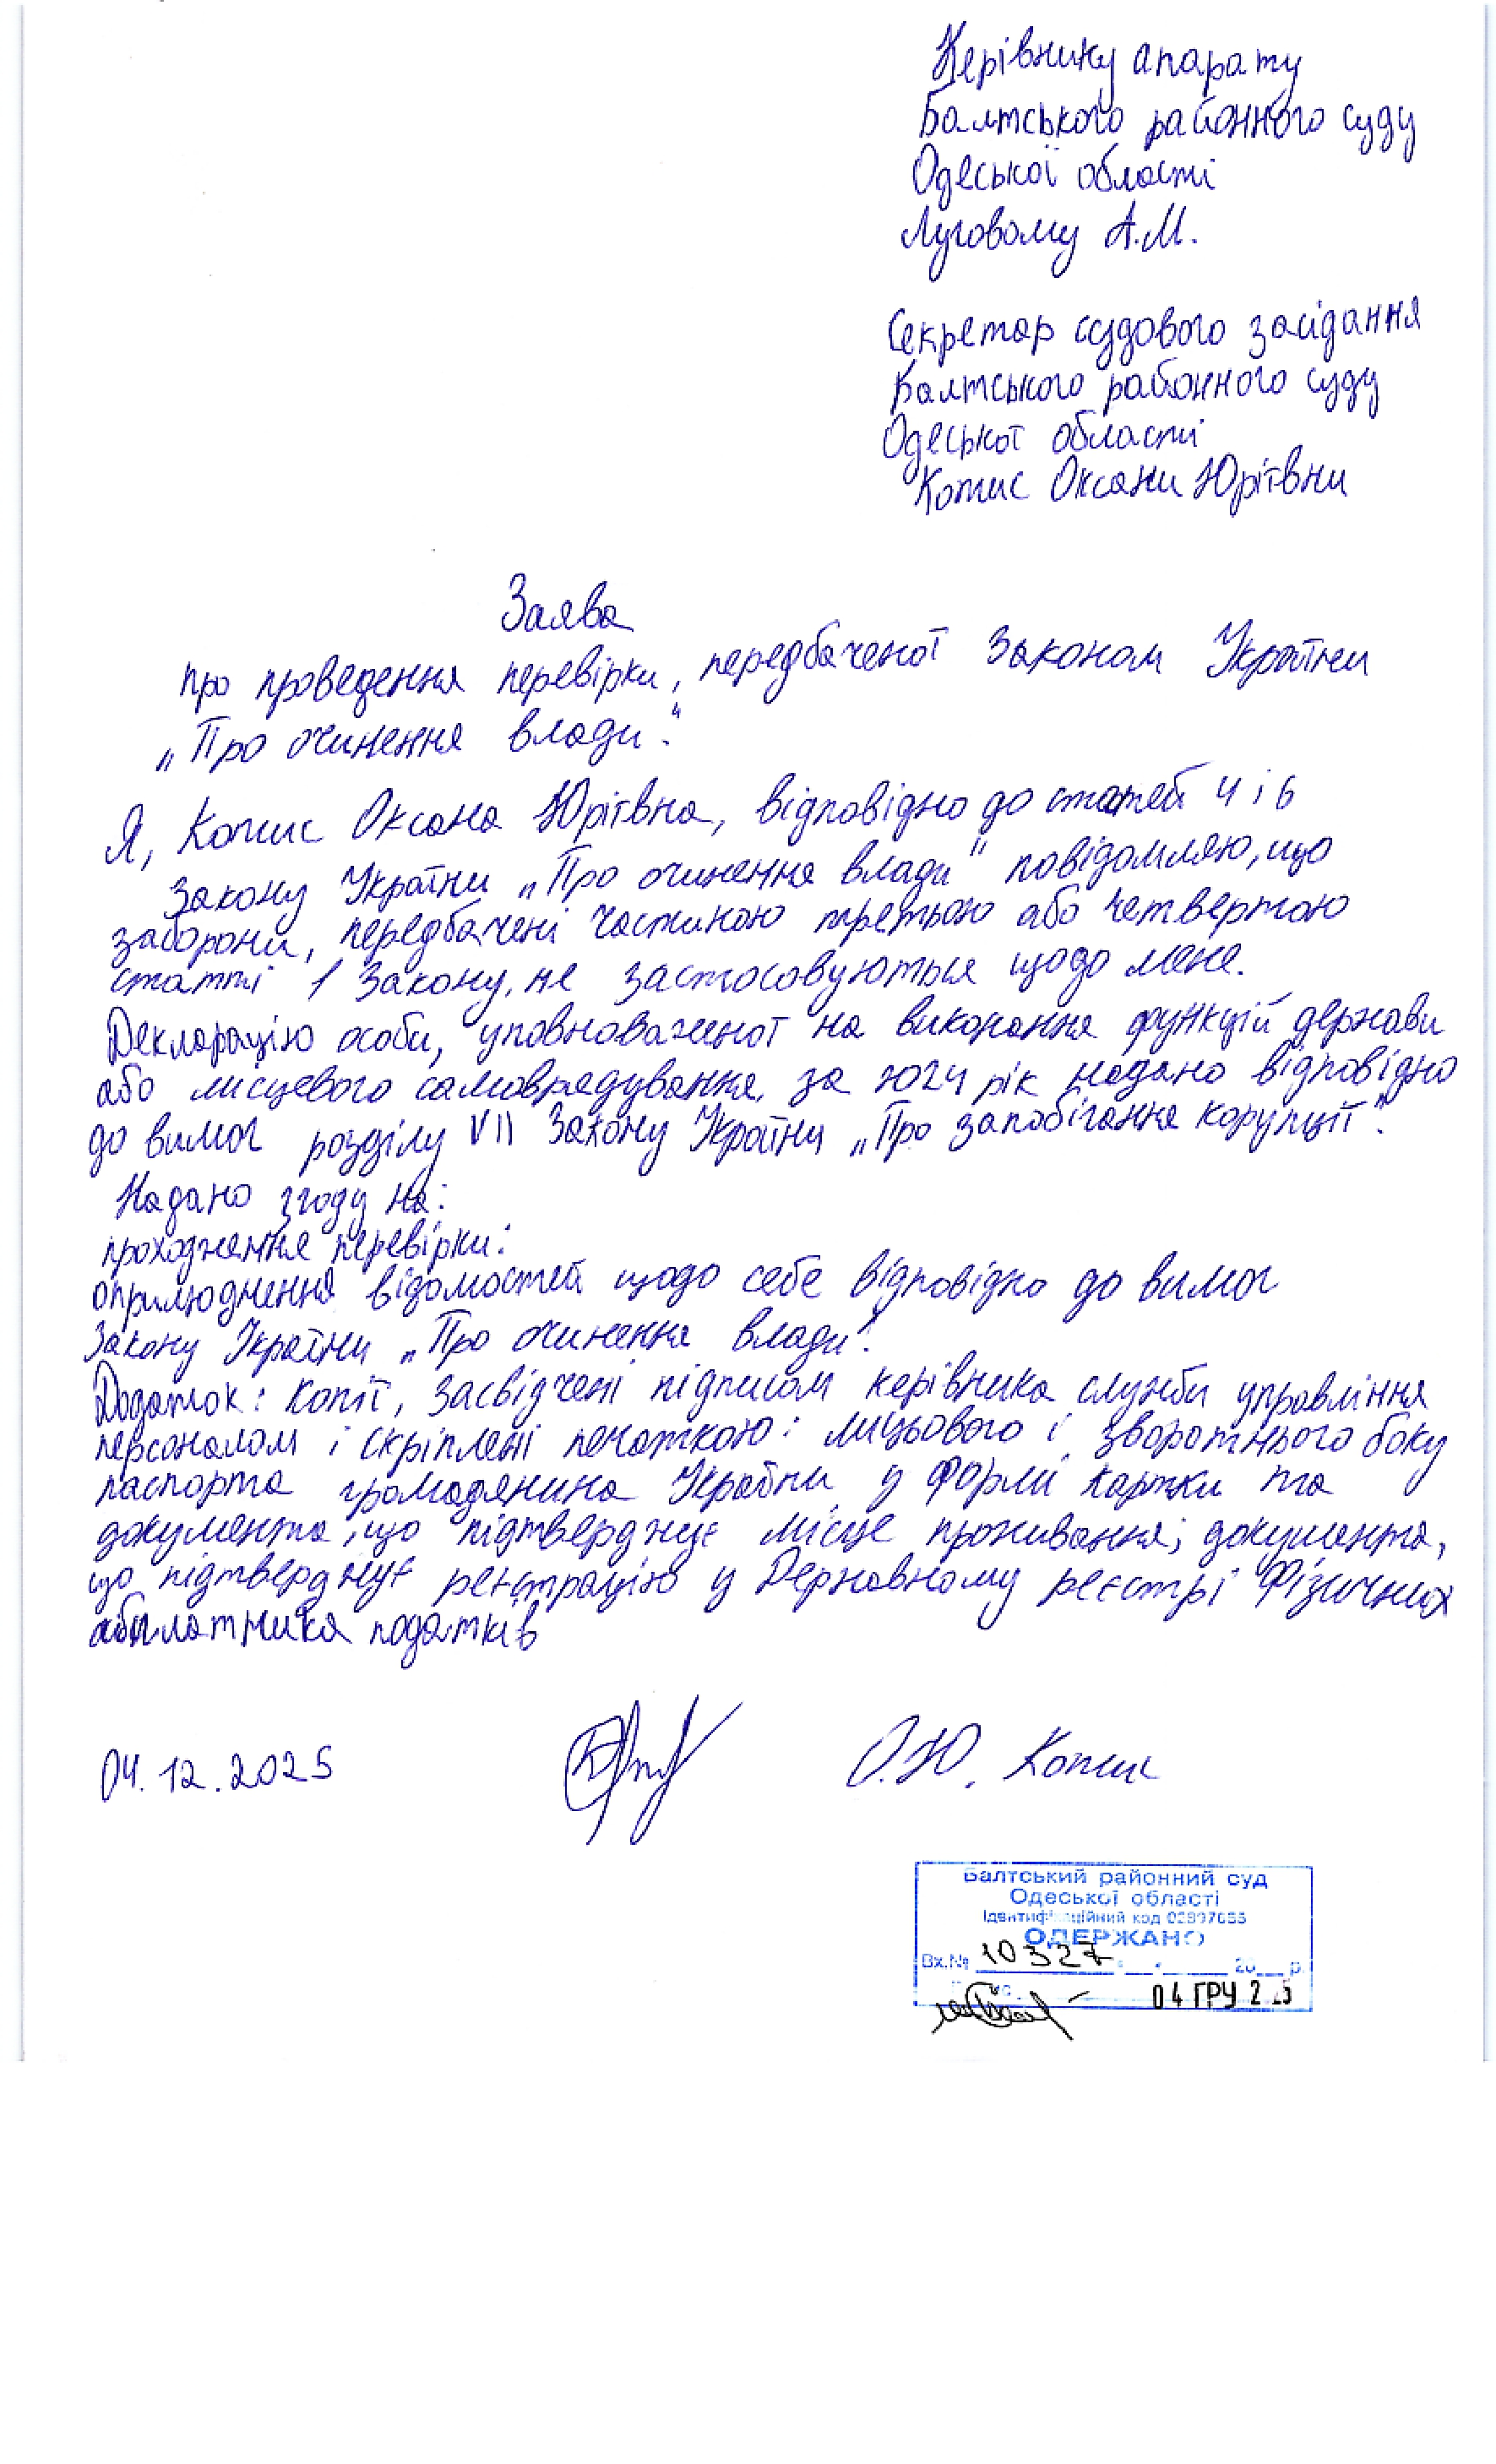 Керівнику апарату
Балтського районного суду
Одеської області
Луговому А.М.
Секретар судового засідання
Балтського районного суду
Одеської області
Котис Оксани Юріївни
Заява
про проведення перевірки, передбаченої Законом України
„Про очищення влади".
Я, Котис Оксана Юріївна, відповідно до статей 4 і 6
Закону України „Про очищення влади" повідомляю, що
заборони, передбачені частиною третьою або четвертою
статті 1 Закону, не застосовуються щодо мене.
Декларацію особи, уповноваженої на виконання функцій держави
або місцевого самоврядування, за 2024 рік надано відповідно
до вимог розділу VII Закону України „Про запобігання корупції".
Надано згоду на:
проходження перевірки:
оприлюднення відомостей щодо себе відповідно до вимог
Закону України „Про очищення влади".
Додаток: копії, засвідчені підписом керівника служби управління
персоналом і скріплені печаткою: лицьового і зворотнього боку
паспорта громадянина України у формі картки та
документа, що підтверджує місце проживання; документа,
що підтверджує реєстрацію у Державному реєстрі фізичних
платника податків
04.12.2025 О.Ю. Котис
Балтський районний суд
Одеської області
Ідентифікаційний код
ОДЕРЖАНО
Вх.№ 10327 20 р.
04 ГРУ 2 25